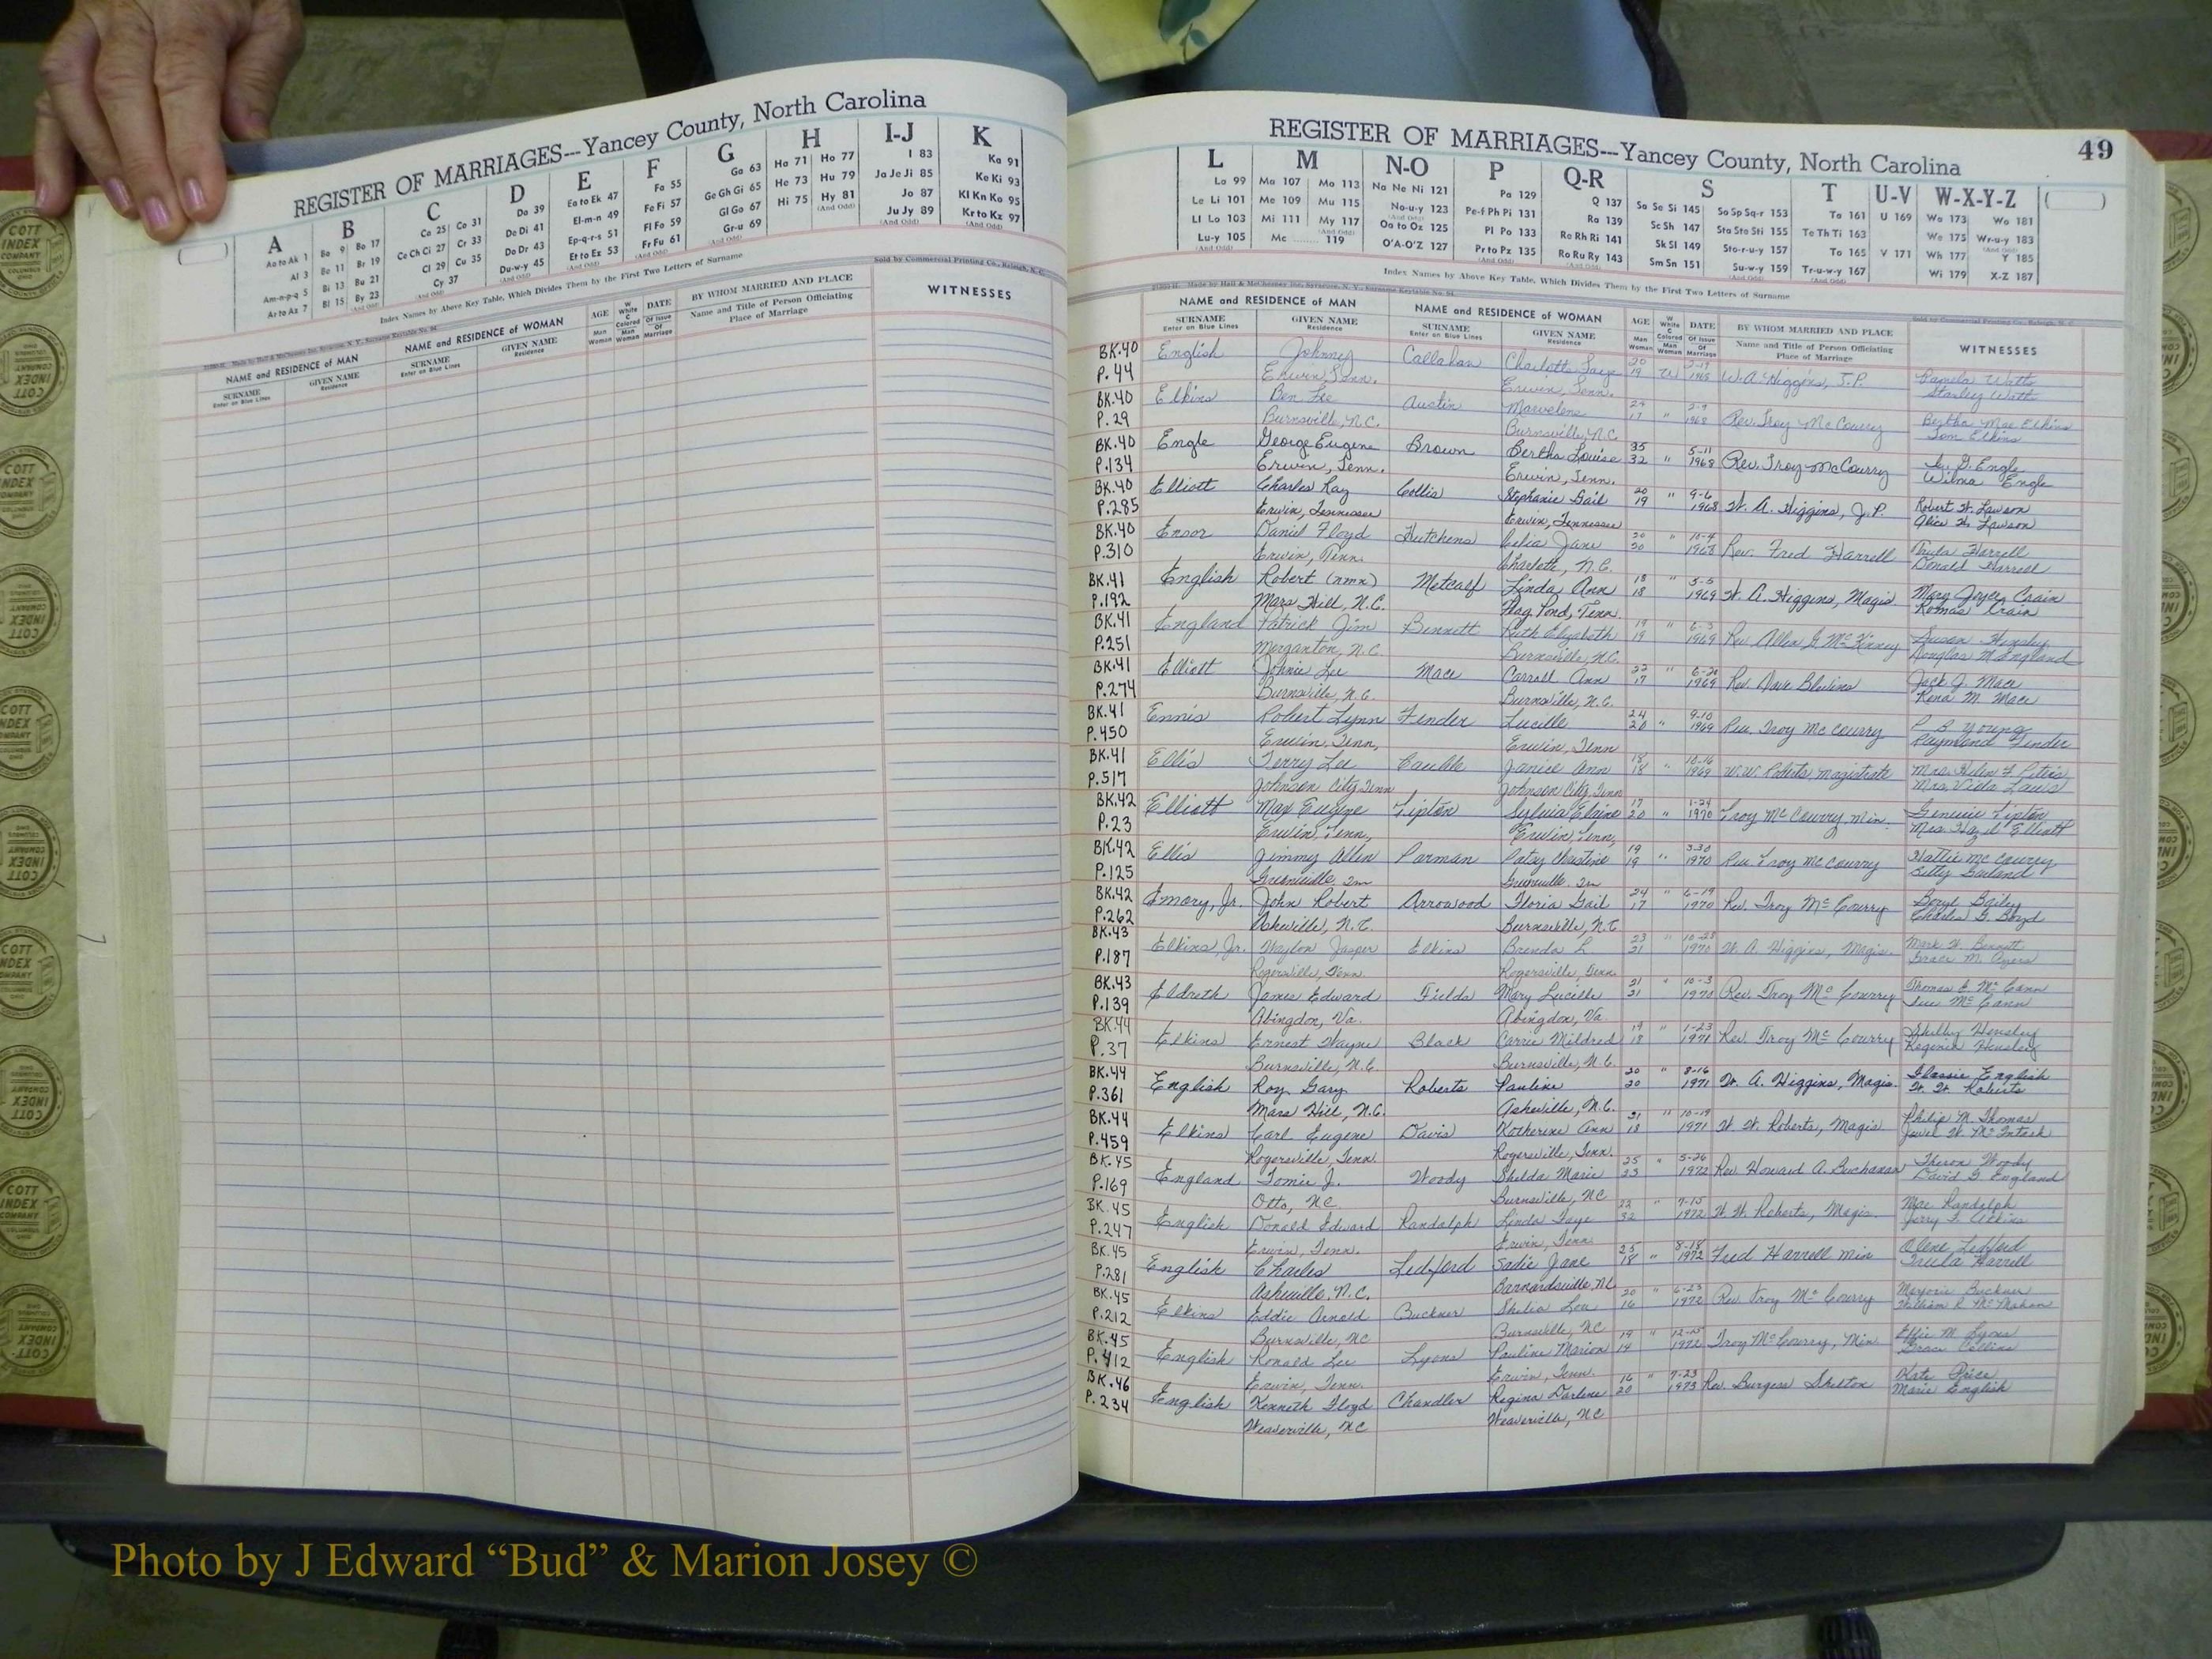 REGISTER OF MARRIAGES---Yancey County, North Carolina
A B C D E F G H I-J K
Aa to Ak 1 Ba 9 Bo 17 Ca 25 Co 31 Da 39 Ea to Ek 47 Fa 55 Ga 63 Ha 71 Ho 77 I 83 Ka 91
Al 3 Be 11 Br 19 Ce Ch Ci 27 Cr 33 De Di 41 El-m-n 49 Fe Fi 57 Ge Gh Gi 65 He 73 Hu 79 Ja Je Ji 85 Ke Ki 93
Am-n-p-q 5 Bi 13 Bu 21 Cl 29 Cu 35 Do Dr 43 Ep-q-r-s 51 Fl Fo 59 Gl Go 67 Hi 75 Hy 81 Jo 87 Kl Kn Ko 95
Ar to Az 7 Bl 15 By 23 Cy 37 Du-w-y 45 Et to Ez 53 Fr Fu 61 Gr-u 69 Ju Jy 89 Kr to Kz 97
Index Names by Above Key Table, Which Divides Them by the First Two Letters of Surname
Sold by Commercial Printing Co., Raleigh, N. C.
NAME and RESIDENCE of MAN NAME and RESIDENCE of WOMAN AGE DATE BY WHOM MARRIED AND PLACE WITNESSES
SURNAME Enter on Blue Lines GIVEN NAME Residence SURNAME Enter on Blue Lines GIVEN NAME Residence Man Woman W White C Colored Man Woman Of Issue Of Marriage Name and Title of Person Officiating Place of Marriage
REGISTER OF MARRIAGES---Yancey County, North Carolina 49
L M N-O P Q-R S T U-V W-X-Y-Z
La 99 Ma 107 Mo 113 Na Ne Ni 121 Pa 129 Q 137 Sa Se Si 145 So Sp Sq-r 153 Ta 161 U 169 Wa 173 Wo 181
Le Li 101 Me 109 Mu 115 No-u-y 123 Pe-f Ph Pi 131 Ra 139 Sc Sh 147 Sta Ste Sti 155 Te Th Ti 163 We 175 Wr-u-y 183
Ll Lo 103 Mi 111 My 117 Oa to Oz 125 Pl Po 133 Re Rh Ri 141 Sk Sl 149 Sto-r-u-y 157 To 165 V 171 Wh 177 Y 185
Lu-y 105 Mc 119 O'A-O'Z 127 Pr to Pz 135 Ro Ru Ry 143 Sm Sn 151 Su-w-y 159 Tr-u-w-y 167 Wi 179 X-Z 187
Index Names by Above Key Table, Which Divides Them by the First Two Letters of Surname
NAME and RESIDENCE of MAN NAME and RESIDENCE of WOMAN AGE DATE BY WHOM MARRIED AND PLACE WITNESSES
SURNAME Enter on Blue Lines GIVEN NAME Residence SURNAME Enter on Blue Lines GIVEN NAME Residence Man Woman W White C Colored Man Woman Of Issue Of Marriage Name and Title of Person Officiating Place of Marriage
BK.40 English Johnny Callahan Charlotte Faye 20 Pamela Watts
P.44 Erwin, Tenn. Erwin, Tenn. 19 W 1968 W. A. Higgins, J.P. Stanley Watts
BK.40 Elkins Ben Austin Marvelene 17 " 1968 Rev. Troy McCourry Bertha Mae Elkins
P.29 Burnsville, N.C. Burnsville, N.C. Tom Elkins
BK.40 Engle George Eugene Brown Bertha Louise 35 32 " 5-11 1968 Rev. Troy McCourry Engle
P.134 Erwin, Tenn. Erwin, Tenn. Wilma Engle
BK.40 Elliott Charles Ray Collis Stephanie Gail 20 19 " 9-6 1968 W. A. Higgins, J.P. Robert W. Lawson
P.285 Erwin, Tennessee Erwin, Tennessee Alice H. Lawson
BK.40 Ensor Daniel Floyd Hutchens Celia Jane 20 20 " 10-4 1968 Rev. Fred Harrell Paula Harrell
P.310 Erwin, Tenn. Charlotte, N.C. Donald Harrell
BK.41 English Robert (nmn) Metcalf Linda Ann 18 18 " 5-5 1969 W. A. Higgins, Magis. Mary Joyce Crain
P.192 Mars Hill, N.C. Flag Pond, Tenn. Romas Crain
BK.41 England Patrick Jim Bennett Ruth Elizabeth 19 19 " 6-5 1969 Rev. Allen G. McKinney Susan Hensley
P.251 Morganton, N.C. Burnsville, N.C. Douglas M England
BK.41 Elliott Johnie Lee Mace Carroll Ann 22 17 " 6-20 1969 Rev. Dave Blevins Jack J. Mace
P.274 Burnsville, N.C. Burnsville, N.C. Rena M. Mace
BK.41 Ennis Robert Lynn Fender Lucille 24 20 " 9-10 1969 Rev. Troy McCourry P. B. Young
P.450 Erwin, Tenn, Erwin, Tenn Raymond Fender
BK.41 Ellis Terry Lee Cauble Janice Ann 18 18 " 10-16 1969 W. W. Roberts magistrate Mrs. Helen F. Peters
P.517 Johnson City, Tenn Johnson City, Tenn Mrs. Viola Laws
BK.42 Elliott Max Eugene Tipton Sylvia Elaine 17 20 " 1-24 1970 Troy McCourry Min. Genevie Tipton
P.23 Erwin, Tenn, Erwin, Tenn, Mrs. Hazel Elliott
BK.42 Ellis Jimmy Allen Parman Patsy Christine 19 19 " 3-30 1970 Rev Troy McCourry Hattie McCourry
P.125 Greeneville Tn Greeneville Tn Betty Garland
BK.42 Emory, Jr. John Robert Arrowood Gloria Gail 24 17 " 6-19 1970 Rev. Troy McCourry Beryl Baily
P.262 Asheville, N.C. Burnsville, N.C Charles G. Boyd
BK.43 Elkins, Jr. Waylon Jasper Elkins Brenda L. 23 21 " 10-28 1970 W. A. Higgins, Magis. Mark W. Bennett
P.187 Rogersville, Tenn. Rogersville, Tenn. Grace M. Ayers
BK.43 Eldreth James Edward Fields Mary Lucille 21 21 " 10-3 1970 Rev. Troy McCourry Thomas E. McCann
P.139 Abingdon, Va. Abingdon, Va. Sue McCann
BK.44 Elkins Ernest Wayne Black Carrie Mildred 19 18 " 1-23 1971 Rev. Troy McCourry Shelby Hensley
P.37 Burnsville, N.C. Burnsville, N.C. Hensley
BK.44 English Roy Gary Roberts Pauline 20 20 " 8-16 1971 W. A. Higgins, Magis. Flossie English
P.361 Mars Hill, N.C. Asheville, N.C. W. W. Roberts
BK.44 Elkins Carl Eugene Davis Katherine Ann 21 18 " 10-19 1971 W. W. Roberts, Magis. Philip M. Thomas
P.459 Rogersville, Tenn. Rogersville, Tenn. Jewel W. McIntosh
BK.45 England Tomie J. Woody Shelda Marie 25 23 " 5-26 1972 Rev. Howard A. Buchanan Theron Woody
P.169 Otto, NC Burnsville, NC David G. England
BK.45 English Donald Edward Randolph Linda Faye 22 " 7-15 1972 W. W. Roberts, Magis. Mae Randolph
P.247 Erwin, Tenn. Erwin, Tenn Jerry F. Atkins
BK.45 English Charles Ledford Sadie Jane 25 18 " 8-18 1972 Fred Harrell min Olene Ledford
P.281 Asheville, N.C. Barnardsville NC Paula Harrell
BK.45 Elkins Eddie Arnold Buckner Shelia Lou 20 16 " 6-23 1972 Rev. Troy McCourry Marjorie Buckner
P.212 Burnsville, NC Burnsville, NC William R. McMahan
BK.45 English Ronald Lee Lyons Pauline Marion 19 19 " 12-15 1972 Troy McCourry, Min. Effie M. Lyons
P.412 Erwin, Tenn. Erwin, Tenn. Grace Collins
BK.46 English Kenneth Floyd Chandler Regina Darlene 16 20 " 7-23 1973 Rev. Burgess Shelton Kate Price
P.234 Weaverville, NC Weaverville, NC Marie English
COTT INDEX COMPANY
Photo by J Edward “Bud” & Marion Josey ©